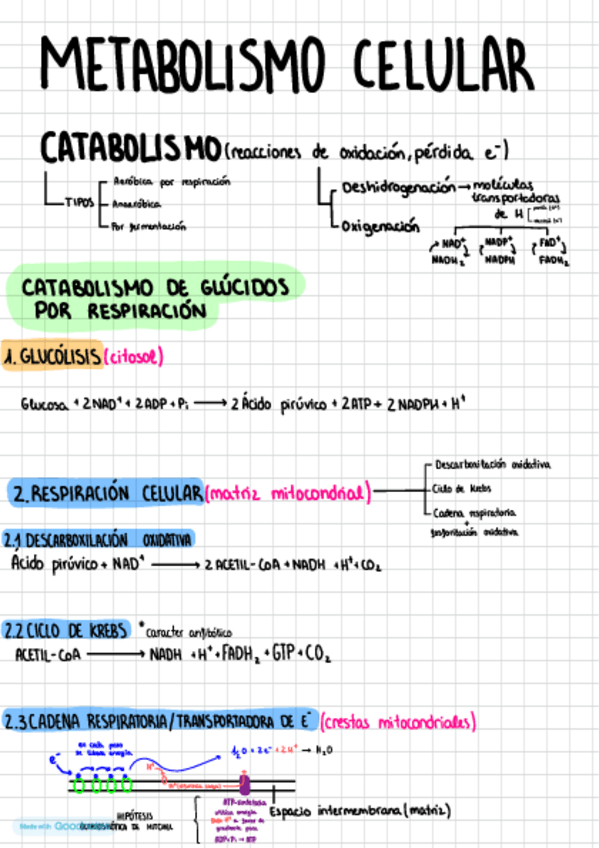 METABOLISMO CELULAR
CATABOLISMO (reacciones de oxidación, pérdida e⁻)
TIPOS
Aeróbica por respiración
Anaeróbica
Por fermentación
Deshidrogenación → moléculas
transportadoras
de H
Oxigenación
NAD⁺ NADP⁺ FAD⁺
NADH₂ NADPH FADH₂
CATABOLISMO DE GLÚCIDOS
POR RESPIRACIÓN
1. GLUCÓLISIS (citosol)
Glucosa + 2 NAD⁺ + 2 ADP + Pᵢ → 2 Ácido pirúvico + 2 ATP + 2 NADPH + H⁺
2. RESPIRACIÓN CELULAR (matriz mitocondrial)
Descarboxilación oxidativa
Ciclo de Krebs
Cadena respiratoria
+
fosforilación oxidativa
2.1 DESCARBOXILACIÓN OXIDATIVA
Ácido pirúvico + NAD⁺ → 2 ACETIL-CoA + NADH + H⁺ + CO₂
2.2 CICLO DE KREBS *caracter anfibólico
ACETIL-CoA → NADH + H⁺ + FADH₂ + GTP + CO₂
2.3 CADENA RESPIRATORIA/TRANSPORTADORA DE E⁻ (crestas mitocondriales)
en cada paso
se libera energía
e⁻
½O + 2e⁻ + 2H⁺ → H₂O
H⁺
Espacio intermembrana (matriz)
ATP-sintetasa
utiliza energía
gradiente para
ADP+Pi → ATP
HIPÓTESIS
QUIMIOSMÓTICA DE MITCHELL
Made with Goodnotes